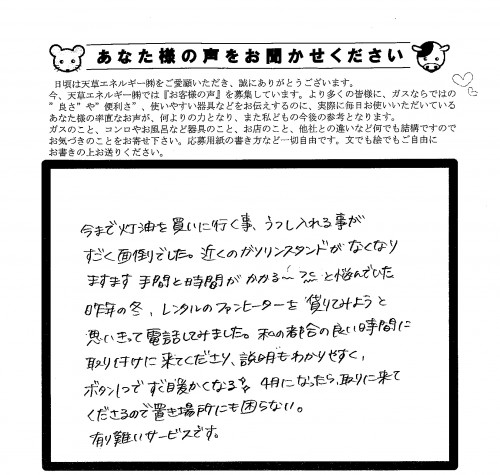 あなた様の声をお聞かせください
日頃は天草エネルギー㈱をご愛願いただき、誠にありがとうございます。
今、天草エネルギー㈱では『お客様の声』を募集しています。より多くの皆様に、ガスならではの
”良さ”や”便利さ”、使いやすい器具などをお伝えするのに、実際に毎日お使いいただいている
あなた様の率直なお声が、何よりの力となり、また私どもの今後の参考となります。
ガスのこと、コンロやお風呂など器具のこと、お店のこと、他社との違いなど何でも結構ですので
お気づきのことをお寄せ下さい。応募用紙の書き方など一切自由です。文でも絵でもご自由に
お書きの上お送りください。
今まで灯油を買いに行く事、うつし入れる事が
すごく面倒でした。近くのガソリンスタンドがなくなり
ますます手間と時間がかかる〜 と悩んでいた
昨年の冬、レンタルのファンヒーターを借りてみようと
思いきって電話してみました。私の都合の良い時間に
取り付けに来てくださり、説明もわかりやすく、
ボタン1つですぐ暖かくなる 4月になったら、取りに来て
くださるので置き場所にも困らない。
有り難いサービスです。